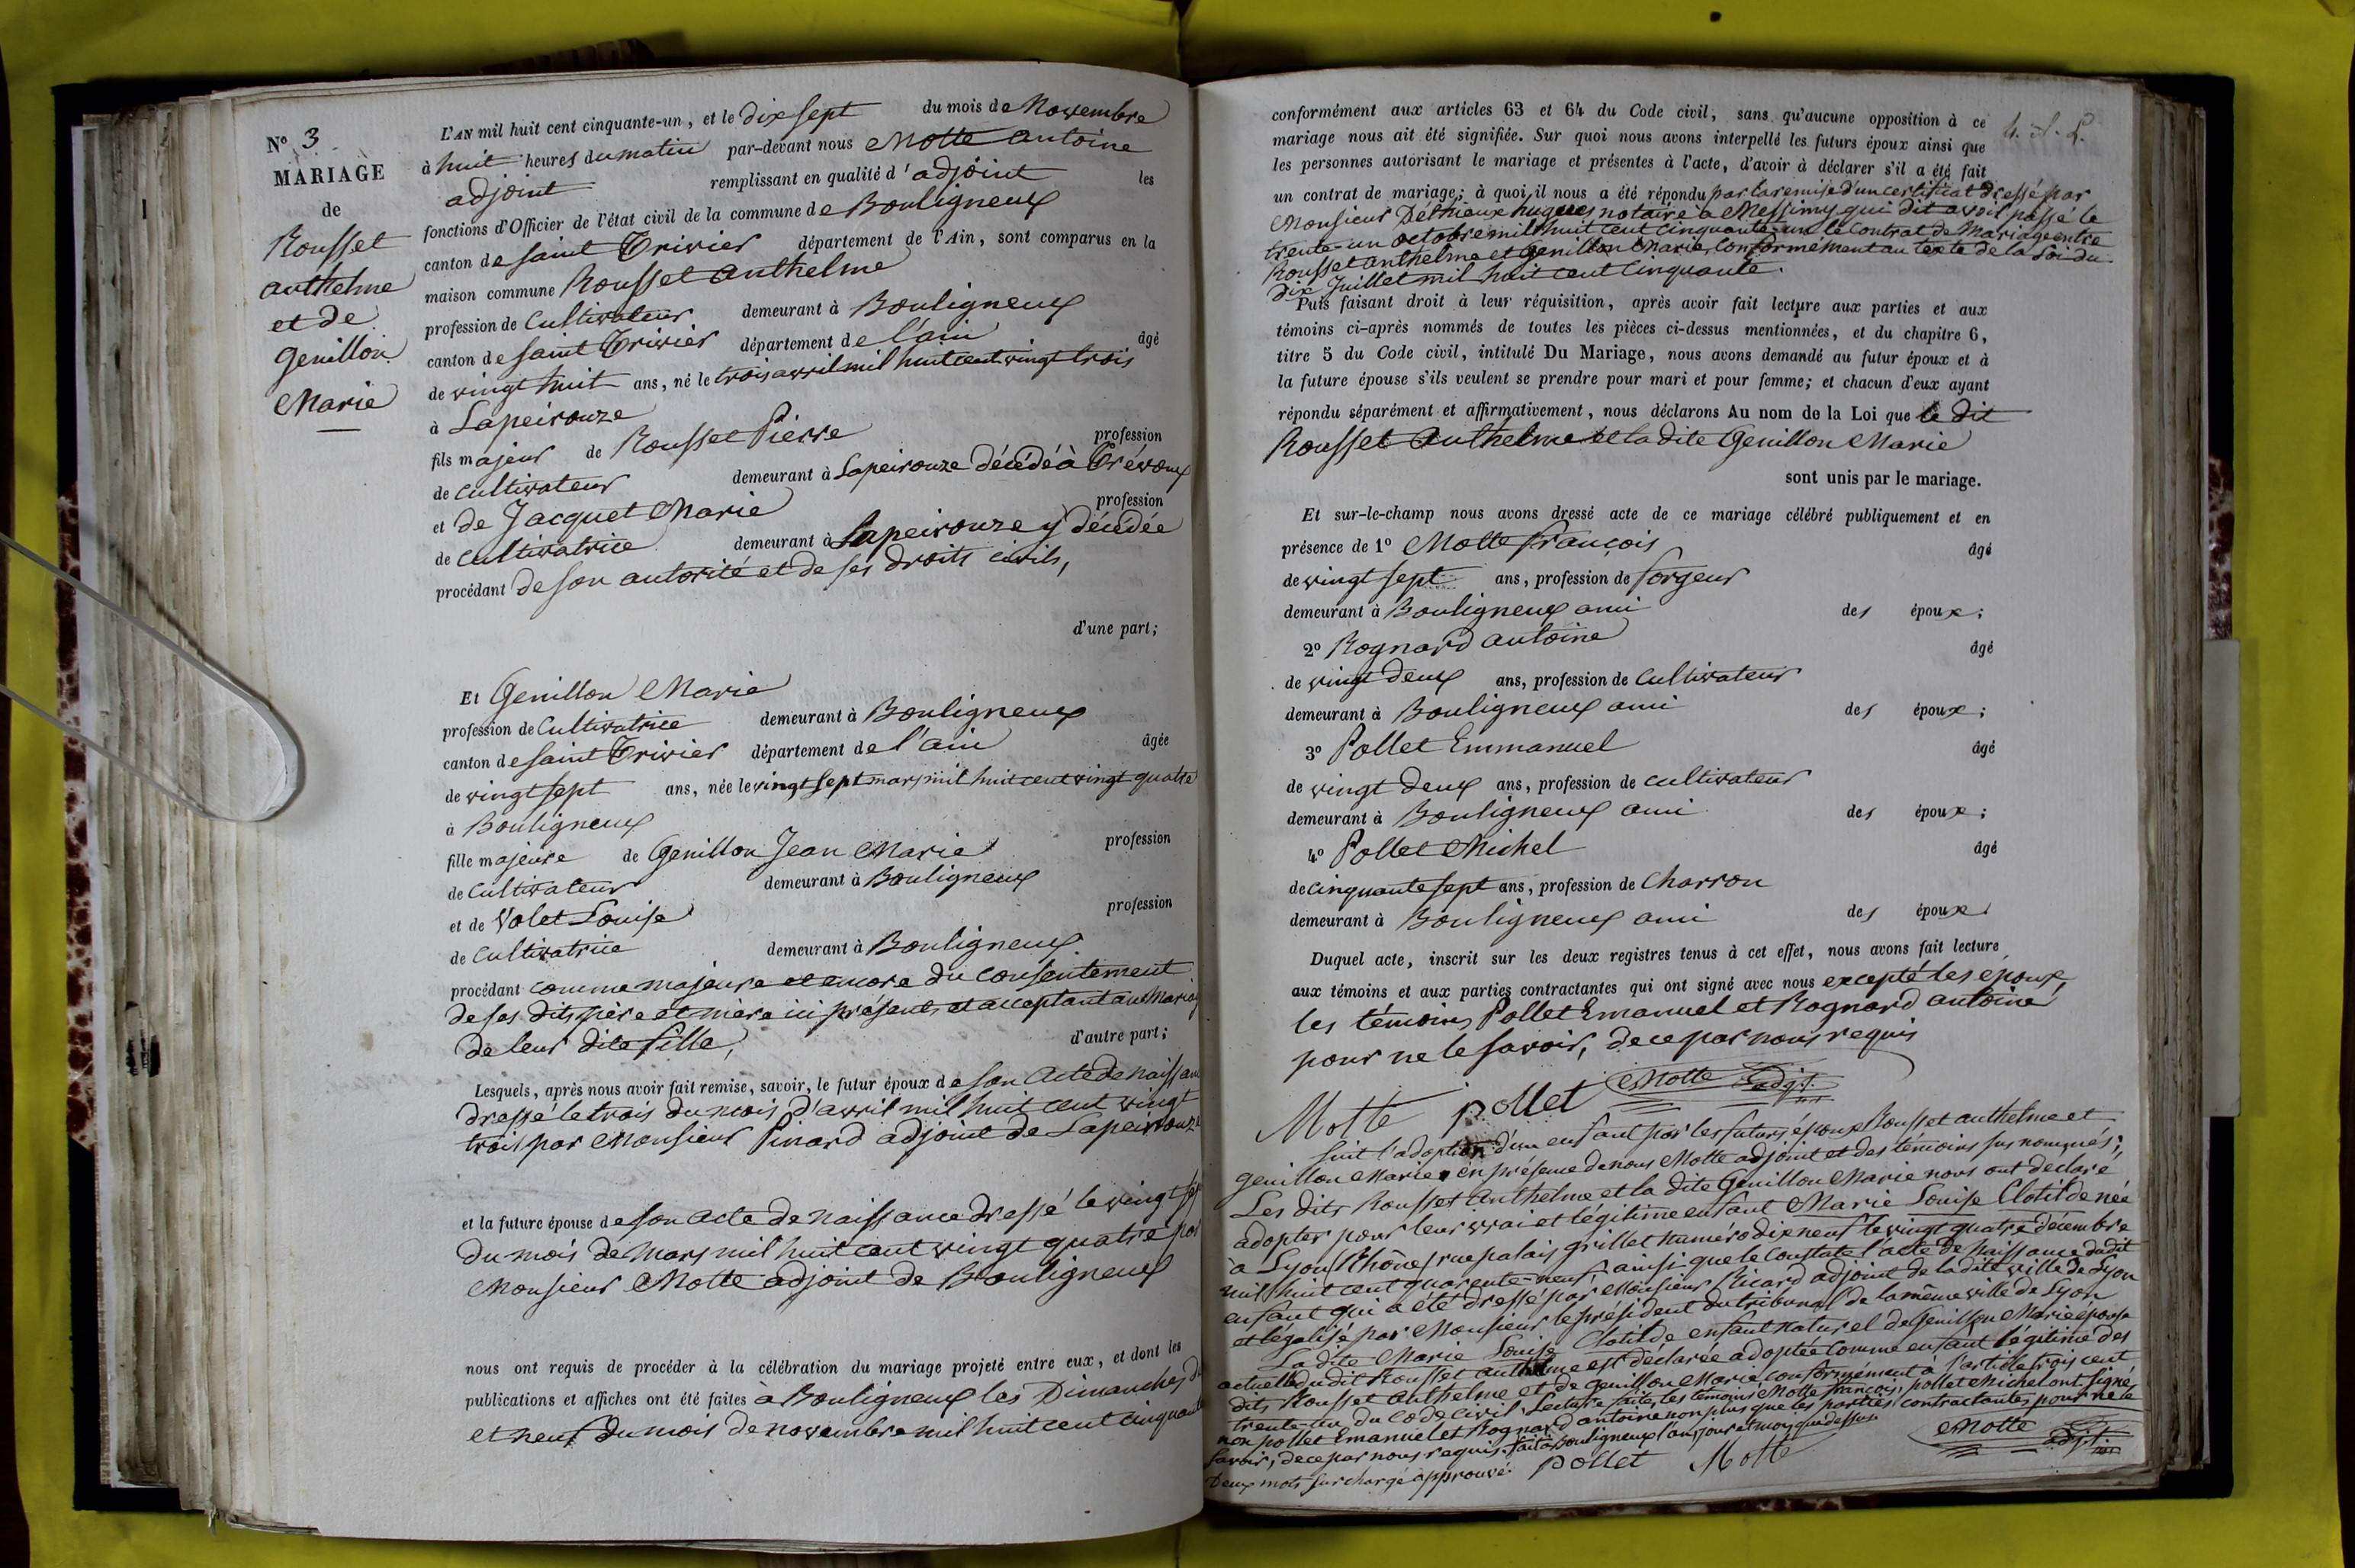 N° 3
MARIAGE
de
Rousset
anthelme
et de
Genillon
Marie
L'AN mil huit cent cinquante-un, et le dix sept du mois de Novembre
à huit heures du matin par-devant nous Motte antoine
adjoint remplissant en qualité d'adjoint les
fonctions d'Officier de l'état civil de la commune de Bouligneux
canton de saint Trivier département de l'Ain, sont comparus en la
maison commune Rousset anthelme
profession de Cultivateur demeurant à Bouligneux
canton de saint Trivier département de l'ain âgé
de vingt huit ans, né le trois avril mil huit cent vingt trois
à Lapeirouze
fils majeur de Rousset Pierre profession
de cultivateur demeurant à Lapeirouze décédé à Trévoux
et de Jacquet Marie profession
de cultivatrice demeurant à Lapeirouze y décédée
procédant de son autorité et de ses droits civils,
d'une part;
Et Genillon Marie
profession de Cultivatrice demeurant à Bouligneux
canton de saint Trivier département de l'ain âgée
de vingt sept ans, née le vingt sept mars mil huit cent vingt quatre
à Bouligneux
fille majeure de Genillon Jean Marie profession
de cultivateur demeurant à Bouligneux
et de Volet Louise profession
de Cultivatrice demeurant à Bouligneux
procédant comme majeure et encore du consentement
de ses dits père et mère ici présents et acceptant au Mariag
de leur dite fille, d'autre part;
Lesquels, après nous avoir fait remise, savoir, le futur époux de son acte de naissan
dressé le trois du mois d'avril mil huit cent vingt
trois par Monsieur Pinard adjoint de Lapeirouze
et la future épouse de son acte de naissance dressé le vingt sep
du mois de Mars mil huit cent vingt quatre par
Monsieur Motte adjoint de Bouligneux
nous ont requis de procéder à la célébration du mariage projeté entre eux, et dont les
publications et affiches ont été faites à Bouligneux les Dimanches
et neuf du mois de novembre mil huit cent cinquante
conformément aux articles 63 et 64 du Code civil, sans qu'aucune opposition à ce
mariage nous ait été signifiée. Sur quoi nous avons interpellé les futurs époux ainsi que
les personnes autorisant le mariage et présentes à l'acte, d'avoir à déclarer s'il a été fait
un contrat de mariage; à quoi, il nous a été répondu par la remise d'un certificat dressé par
Monsieur hugues notaire à Messimy qui dit avoir passé le
trente-un octobre mil huit cent cinquante-un le Contrat de Mariage entre
Rousset anthelme et Genillon Marie, Conformément au texte de la Loi du
dix Juillet mil huit cent Cinquante.
Puis faisant droit à leur réquisition, après avoir fait lecture aux parties et aux
témoins ci-après nommés de toutes les pièces ci-dessus mentionnées, et du chapitre 6,
titre 5 du Code civil, intitulé Du Mariage, nous avons demandé au futur époux et à
la future épouse s'ils veulent se prendre pour mari et pour femme; et chacun d'eux ayant
répondu séparément et affirmativement, nous déclarons Au nom de la Loi que le dit
Rousset Anthelme et la dite Genillon Marie
sont unis par le mariage.
Et sur-le-champ nous avons dressé acte de ce mariage célébré publiquement et en
présence de 1° Motte françois âgé
de vingt sept ans, profession de forgeur
demeurant à Bouligneux ami des époux;
2° Rognard antoine âgé
de vingt deux ans, profession de Cultivateur
demeurant à Bouligneux ami des époux;
3° Pollet Emmanuel âgé
de vingt deux ans, profession de cultivateur
demeurant à Bouligneux ami des époux;
4° Pollet Michel âgé
de cinquante sept ans, profession de Charron
demeurant à Bouligneux ami des époux
Duquel acte, inscrit sur les deux registres tenus à cet effet, nous avons fait lecture
aux témoins et aux parties contractantes qui ont signé avec nous excepté les époux,
les témoins Pollet Emanuel et Rognard antoine
pour ne le savoir, de ce par nous requis
Motte pollet Motte adjt.
suit l'adoption d'un enfant par les futurs époux Rousset anthelme et
genillon Marie en présence de nous Motte adjoint et des témoins sus nommés;
Les dits Rousset Anthelme et la dite Genillon Marie nous ont déclaré
adopter pour leur vrai et légitime enfant Marie Louise Clotilde née
à Lyon (Rhône) rue palais grillet numéro dix neuf le vingt quatre décembre
mil huit cent quarente-neuf, ainsi que le Constate l'acte de Naissance dudit
enfant qui a été dressé par Monsieur Ricard adjoint de ladite ville de Lyon
et légalisé par Monsieur le président du tribunal de la même ville de Lyon
La dite Marie Louise Clotilde enfant naturel de Genillon Marie épouse
actuelle dudit Rousset anthelme est déclarée adoptée Comme enfant légitime des
dits Rousset anthelme et de Genillon Marie conformément à l'article trois cent
trente-un du Code Civil. Lecture faite, les témoins Motte françois, pollet Michel ont signé
non pollet Emanuel et Rognard antoine non plus que les parties contractantes pour ne le
savoir, de ce par nous requis. fait à Bouligneux l'an, jour et mois que dessus
Deux mots surchargé approuvé. pollet Motte Motte adjt.